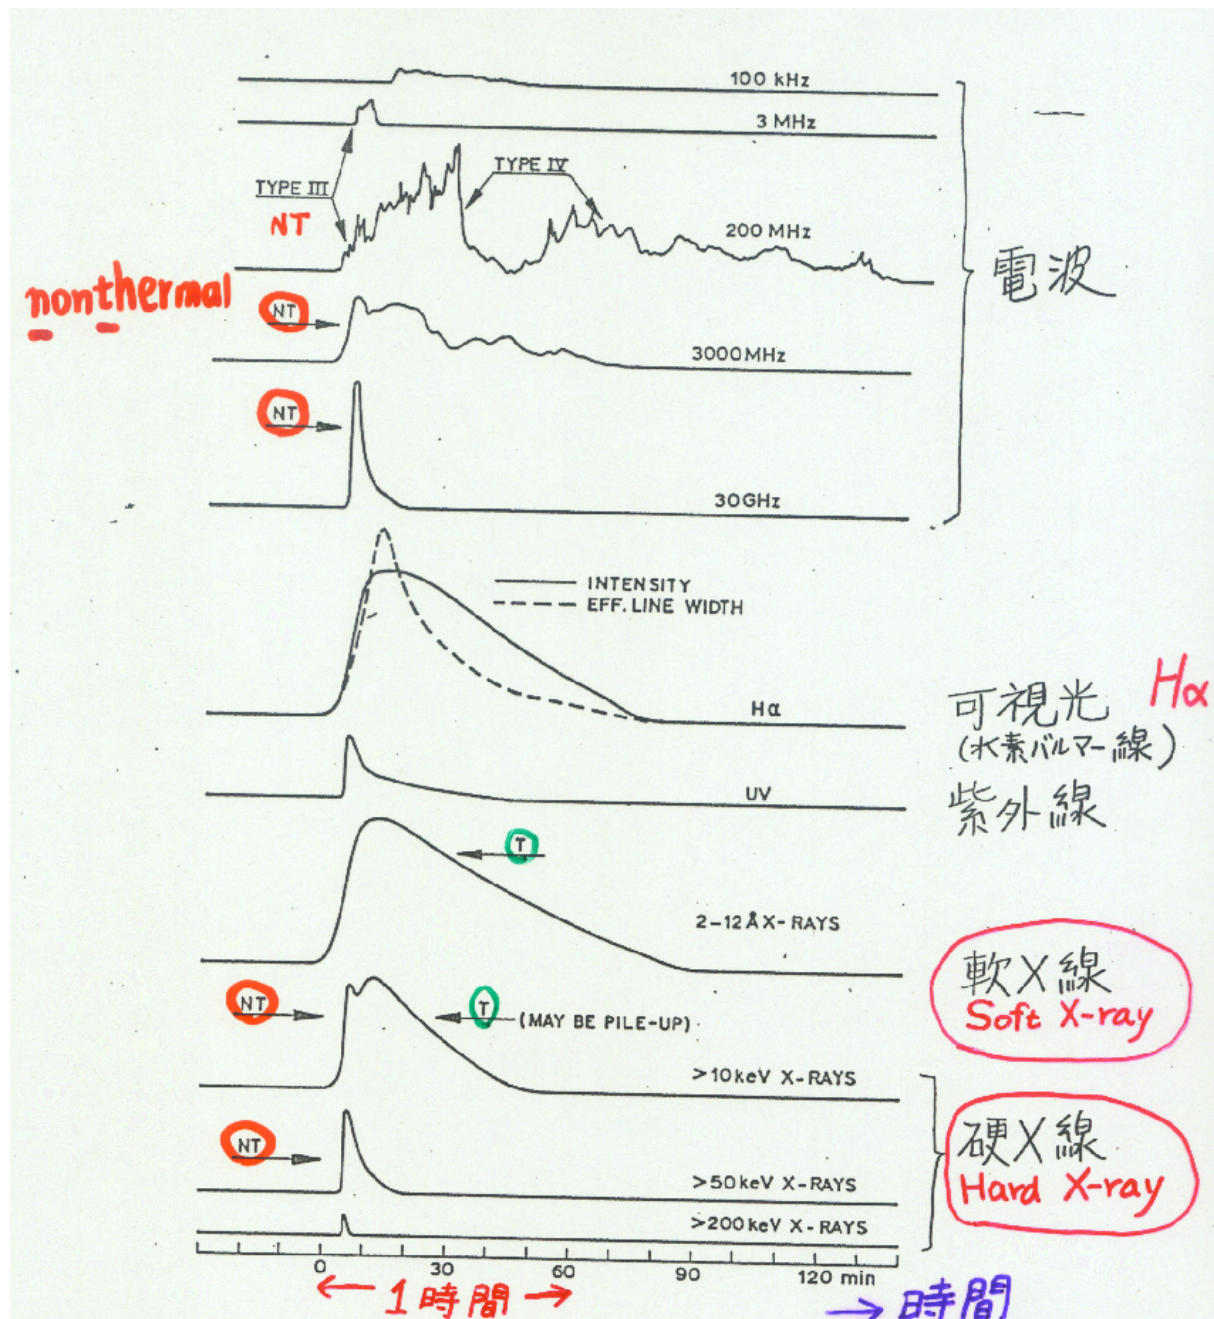 100 kHz
3 MHz
TYPE III
TYPE IV
NT
200 MHz
電波
nonthermal
NT
3000MHz
NT
30GHz
INTENSITY
EFF. LINE WIDTH
Hα
可視光 Hα
(水素バルマー線)
UV
紫外線
T
2-12Å X-RAYS
軟X線
Soft X-ray
NT
T
(MAY BE PILE-UP)
>10keV X-RAYS
硬X線
Hard X-ray
NT
>50keV X-RAYS
>200keV X-RAYS
0 30 60 90 120 min
1時間
時間